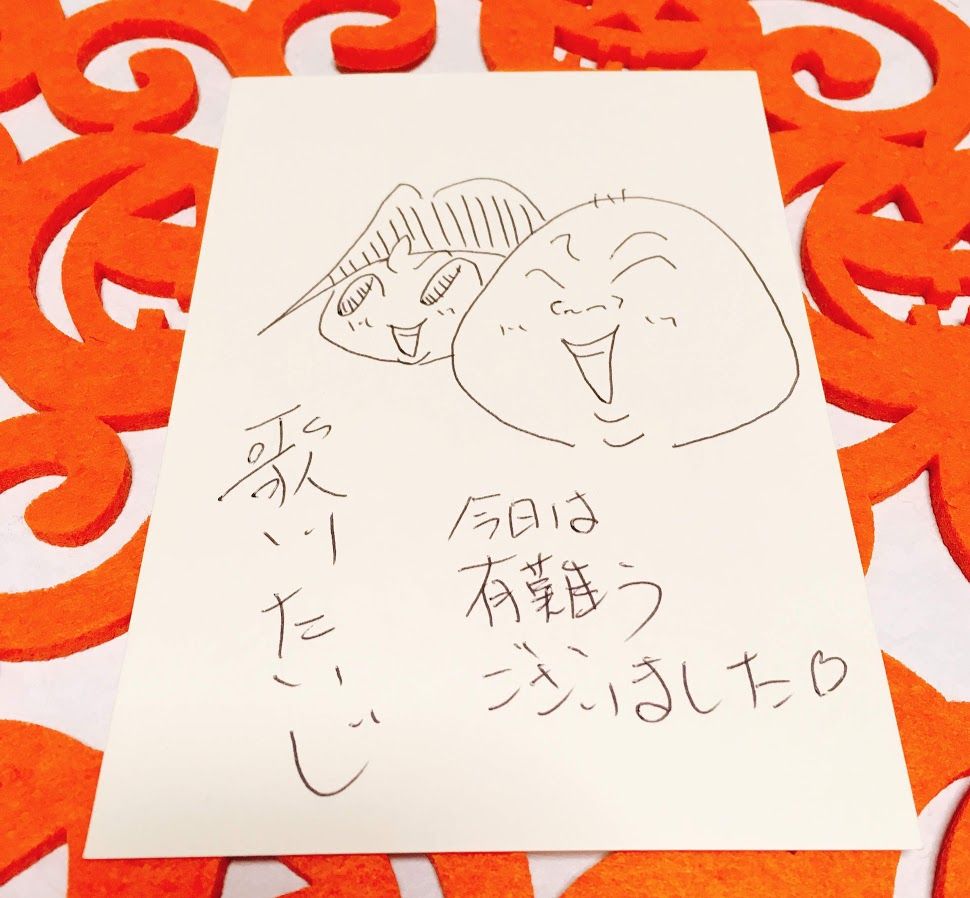 今日は
有難う
ございました♡
歌川たいじ